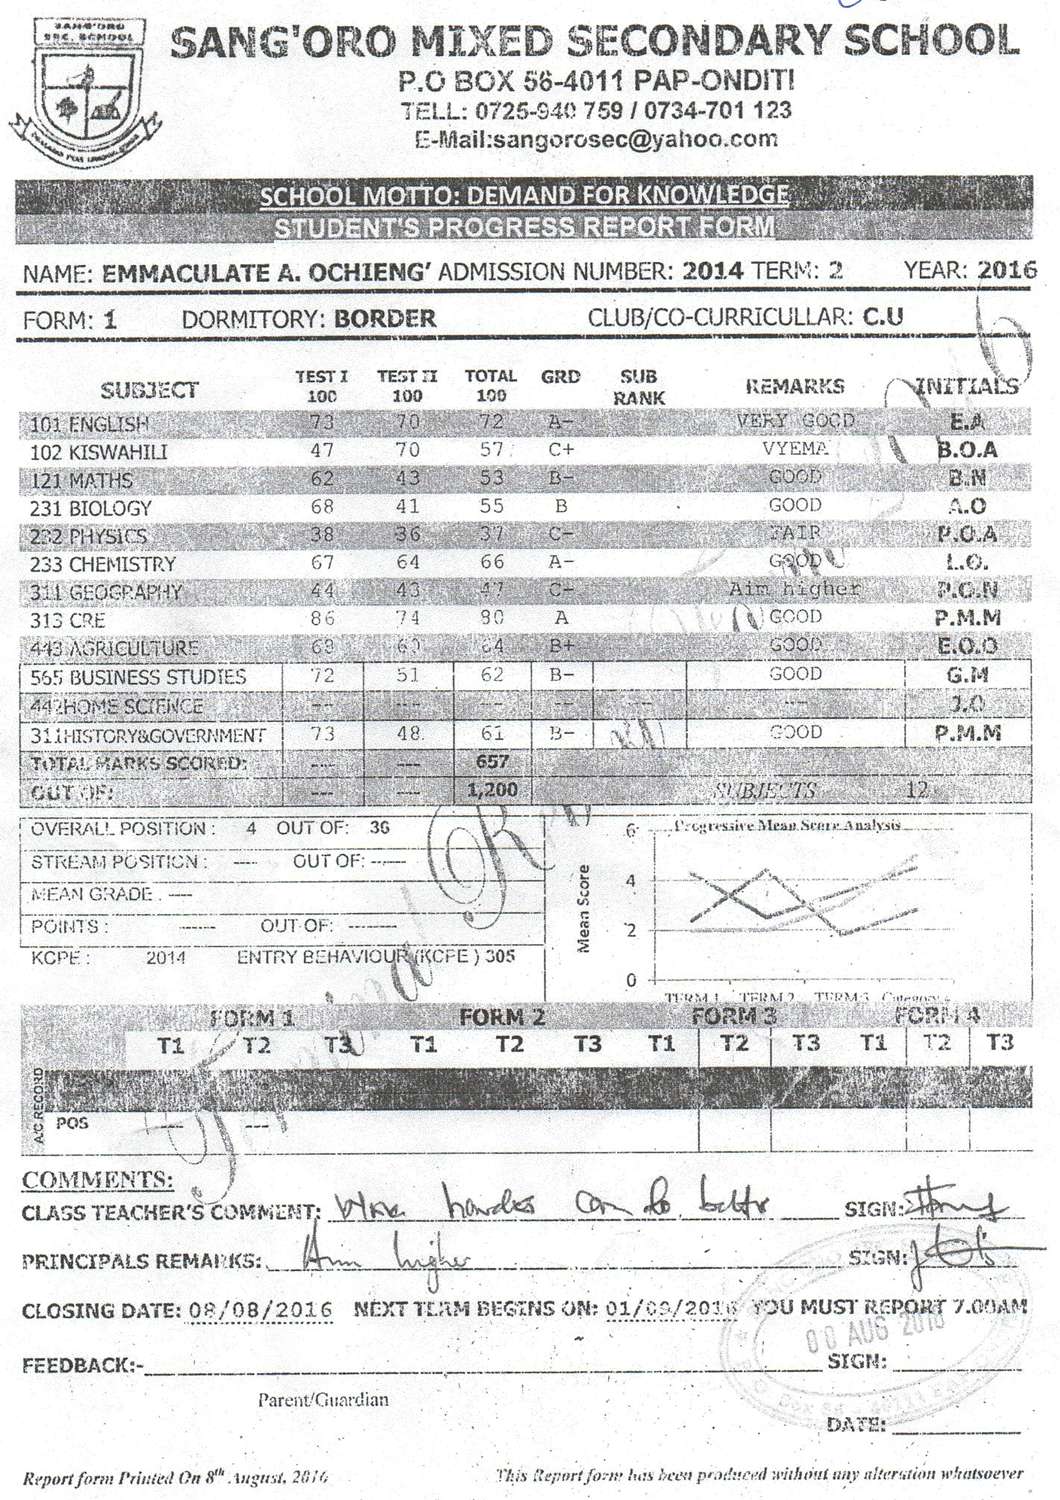 SANG'ORO
SEC. SCHOOL
SANG'ORO MIXED SECONDARY SCHOOL
P.O BOX 56-4011 PAP-ONDITI
TELL: 0725-940 759 / 0734-701 123
E-Mail:sangorosec@yahoo.com
SCHOOL MOTTO: DEMAND FOR KNOWLEDGE
STUDENT'S PROGRESS REPORT FORM
NAME: EMMACULATE A. OCHIENG' ADMISSION NUMBER: 2014 TERM: 2 YEAR: 2016
FORM: 1 DORMITORY: BORDER CLUB/CO-CURRICULLAR: C.U
SUBJECT TEST I 100 TEST II 100 TOTAL 100 GRD SUB RANK REMARKS INITIALS
101 ENGLISH 73 70 72 A- VERY GOOD E.A
102 KISWAHILI 47 70 57 C+ VYEMA B.O.A
121 MATHS 62 43 53 B- GOOD B.N
231 BIOLOGY 68 41 55 B GOOD A.O
232 PHYSICS 38 36 37 C- FAIR P.O.A
233 CHEMISTRY 67 64 66 A- GOOD L.O.
311 GEOGRAPHY 44 43 47 C- Aim higher P.O.N
313 CRE 86 74 80 A GOOD P.M.M
443 AGRICULTURE 64 B+ GOOD E.O.O
565 BUSINESS STUDIES 72 51 62 B- GOOD G.M
442HOME SCIENCE --- --- --- -- --- J.O
311HISTORY&GOVERNMENT 73 48 61 B- GOOD P.M.M
TOTAL MARKS SCORED: ---- --- 657
OUT OF: ---- --- 1,200 SUBJECTS 12
OVERALL POSITION : 4 OUT OF: 36
STREAM POSITION : ---- OUT OF: -----
MEAN GRADE : ----
POINTS : ------ OUT OF: --------
KCPE : 2014 ENTRY BEHAVIOUR (KCPE ) 305
Progressive Mean Score Analysis
Mean Score
6
4
2
0
TERM 1 TERM 2 TERM 3 Category 4
FORM 1 FORM 2 FORM 3 FORM 4
T1 T2 T3 T1 T2 T3 T1 T2 T3 T1 T2 T3
A/C RECORD
POS --- ---
COMMENTS:
CLASS TEACHER'S COMMENT: Work harder can do better SIGN:
PRINCIPALS REMARKS: Aim higher SIGN:
CLOSING DATE: 08/08/2016 NEXT TERM BEGINS ON: 01/09/2016 YOU MUST REPORT 7.00AM
AUG 2016
FEEDBACK:- SIGN:
Parent/Guardian
DATE:
Report form Printed On 8th August, 2016 This Report form has been produced without any alteration whatsoever